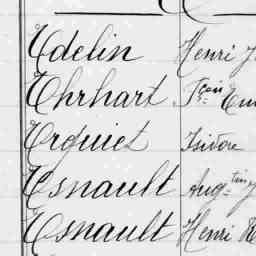 Edelin Henri J
Ehrhart Fçois Em
Erquiet Isidore
Esnault Aug-tin J
Esnault Henri E